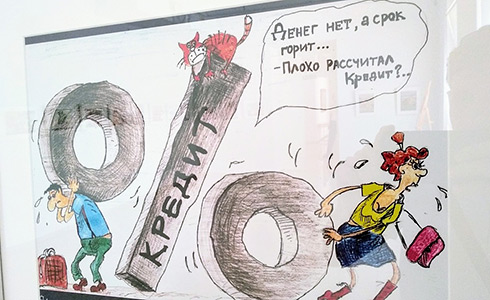 Денег нет, а срок
горит...
-Плохо рассчитал
Кредит?..
КРЕДИТ